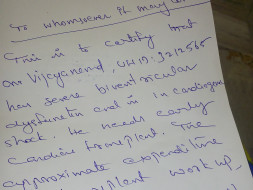 To whomsoever it may con
This is to certify that
Mr Vijayanand, UHID: 3212565
has severe biventricular
dysfunction and is in cardiogenic
shock. He needs early
Cardiac transplant. The
approximate expenditure
transplant work up,